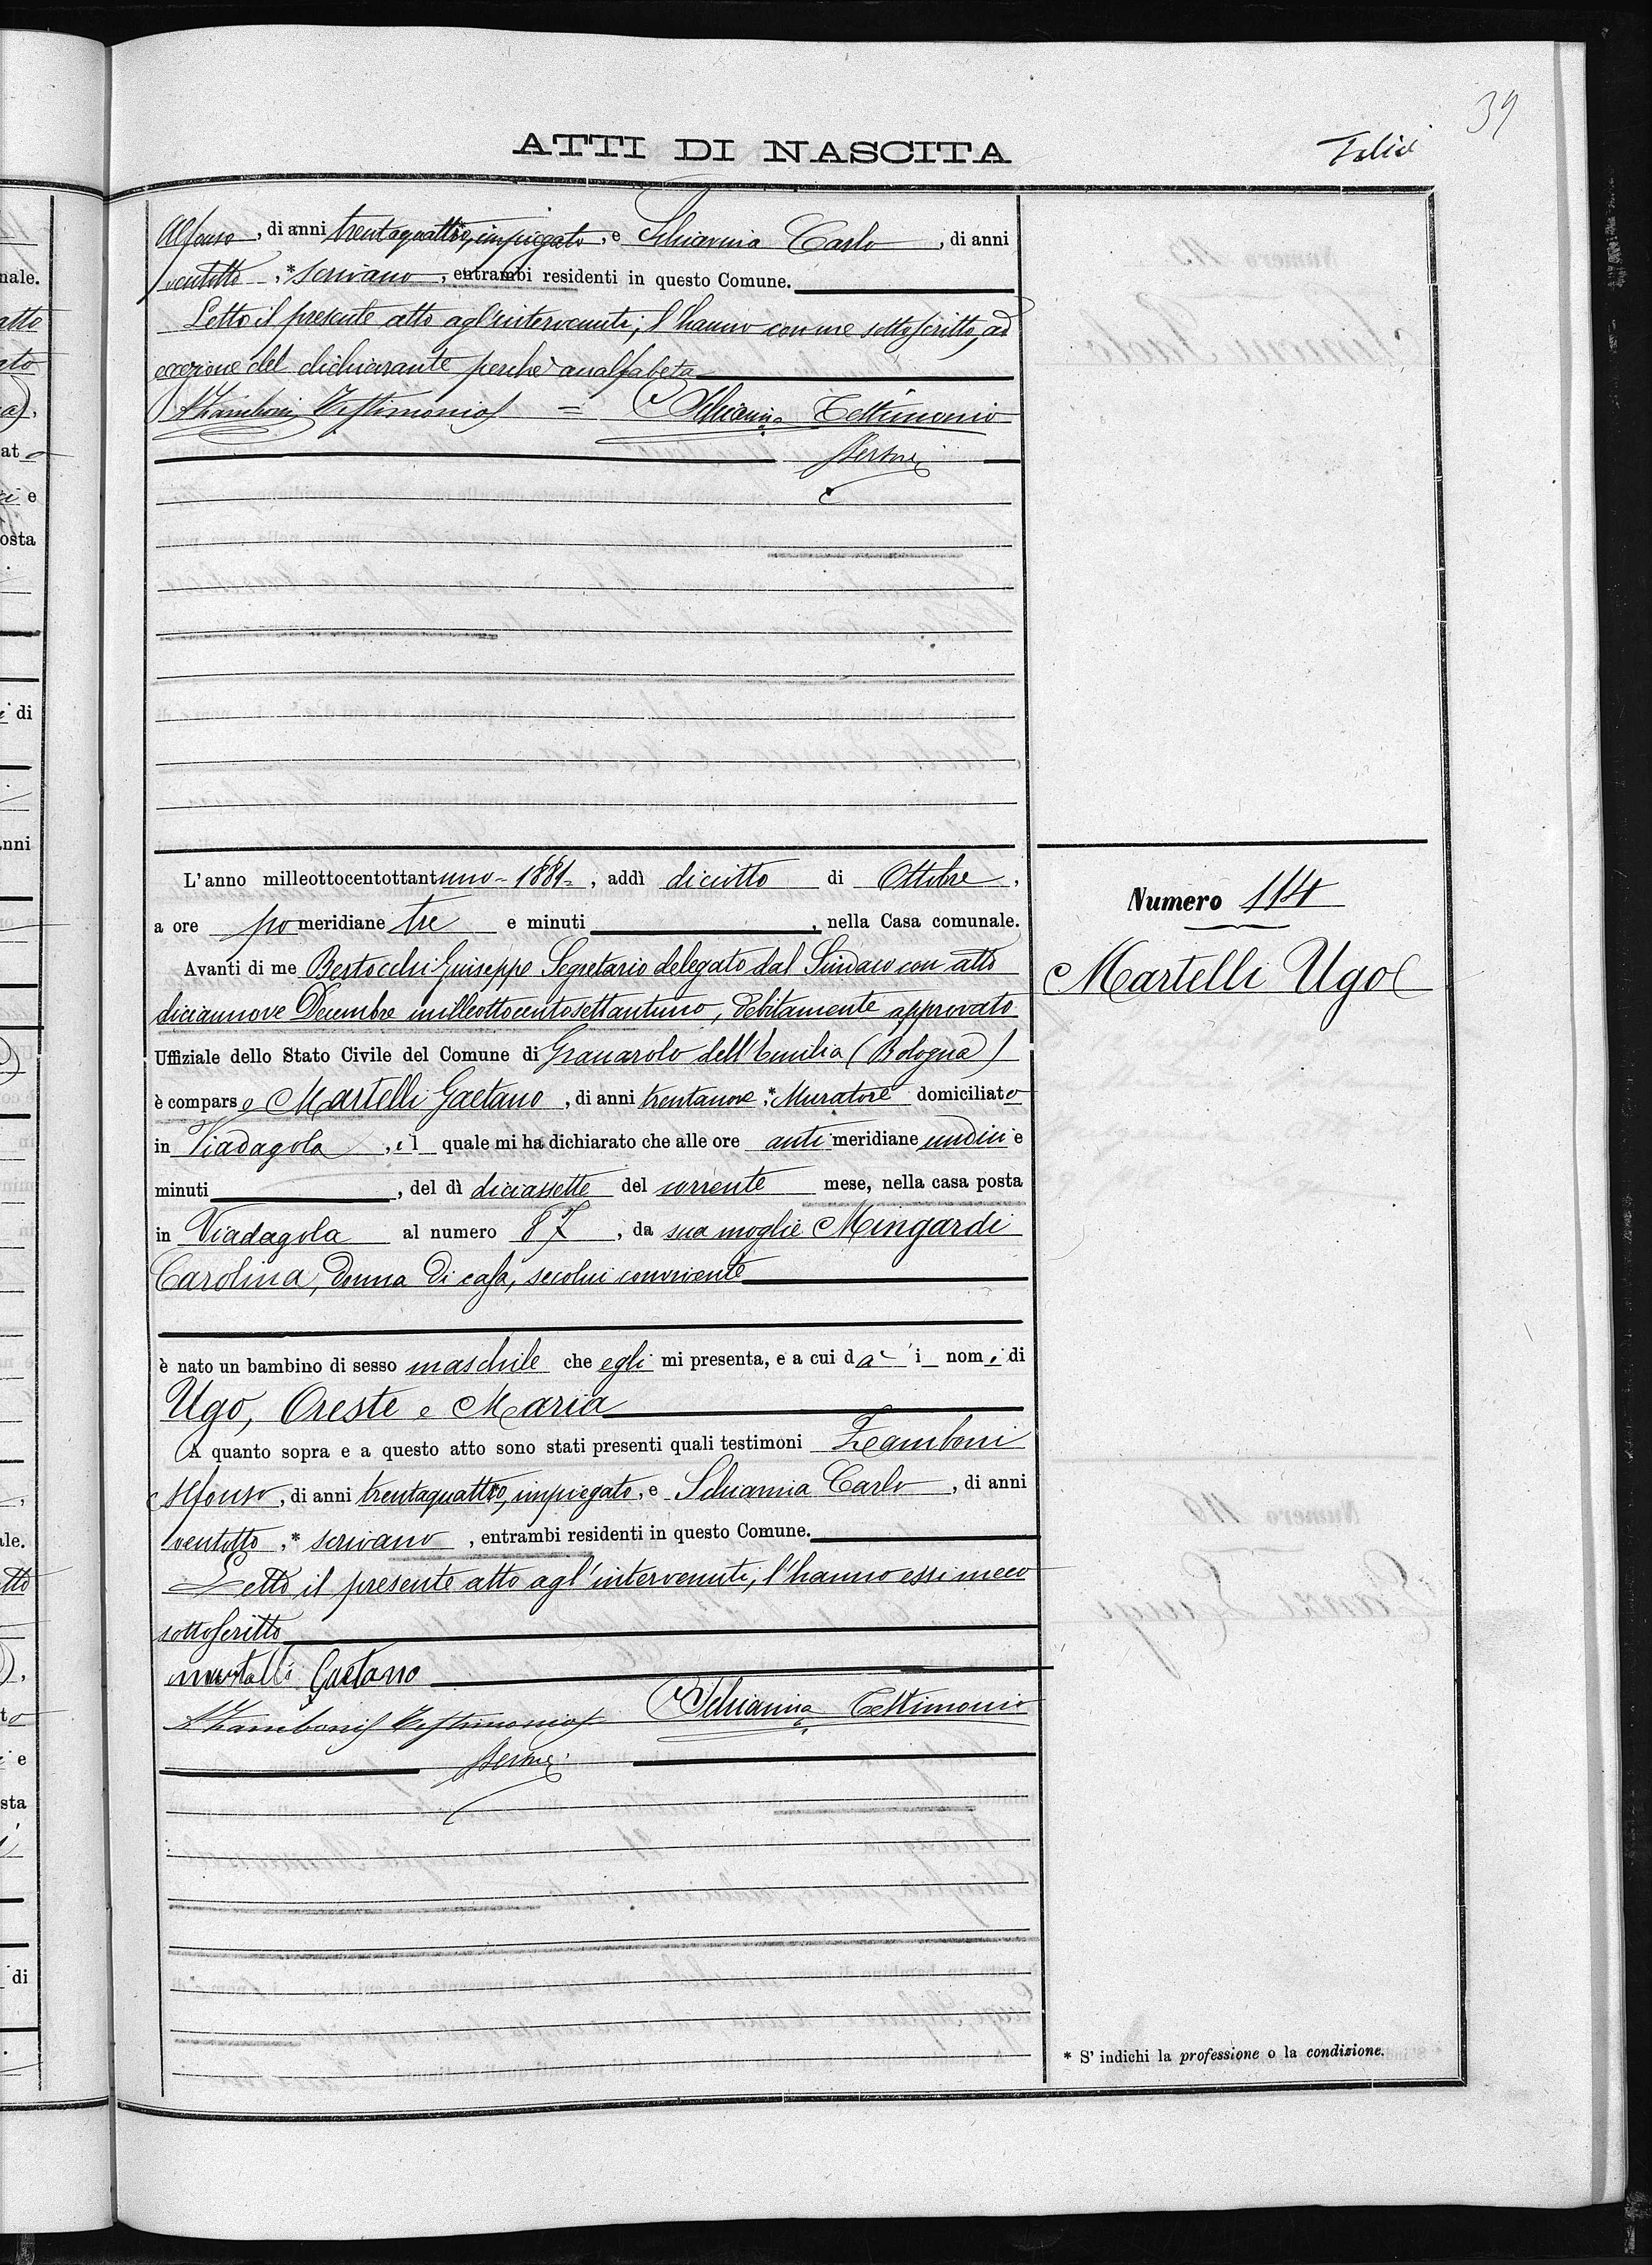 39
ATTI DI NASCITA
Alfonso, di anni trentaquattro, impiegato, e Schiavina Carlo, di anni
ventotto, * scrivano, entrambi residenti in questo Comune.
Letto il presente atto agl'intervenuti, l'hanno con me sottoscritto, ad
eccezione del dichiarante perchè analfabeta
AZamboni Testimonio = C Schiavina Testimonio
L'anno milleottocentottantuno - 1881 -, addì diciotto di Ottobre,
a ore pomeridiane tre e minuti , nella Casa comunale.
Avanti di me Bertocchi Giuseppe Segretario delegato dal Sindaco con atto
diciannove Decembre milleottocentosettantuno, debitamente approvato
Uffiziale dello Stato Civile del Comune di Granarolo dell'Emilia (Bologna)
è comparso Martelli Gaetano, di anni trentanove, * Muratore domiciliato
in Viadagola, il quale mi ha dichiarato che alle ore antimeridiane undici e
minuti , del dì diciassette del corrente mese, nella casa posta
in Viadagola al numero 87, da sua moglie Mingardi
Carolina, donna di casa, secolui convivente
è nato un bambino di sesso maschile che egli mi presenta, e a cui dà i nomi di
Ugo, Oreste e Maria
A quanto sopra e a questo atto sono stati presenti quali testimoni Zamboni
Alfonso, di anni trentaquattro, impiegato, e Schiavina Carlo, di anni
ventotto, * scrivano, entrambi residenti in questo Comune.
Letto il presente atto agl'intervenuti, l'hanno essi meco
sottoscritto
martelli Gaetano
AZamboni Testimonio C Schiavina Testimonio
Numero 114
Martelli Ugo
* S'indichi la professione o la condizione.